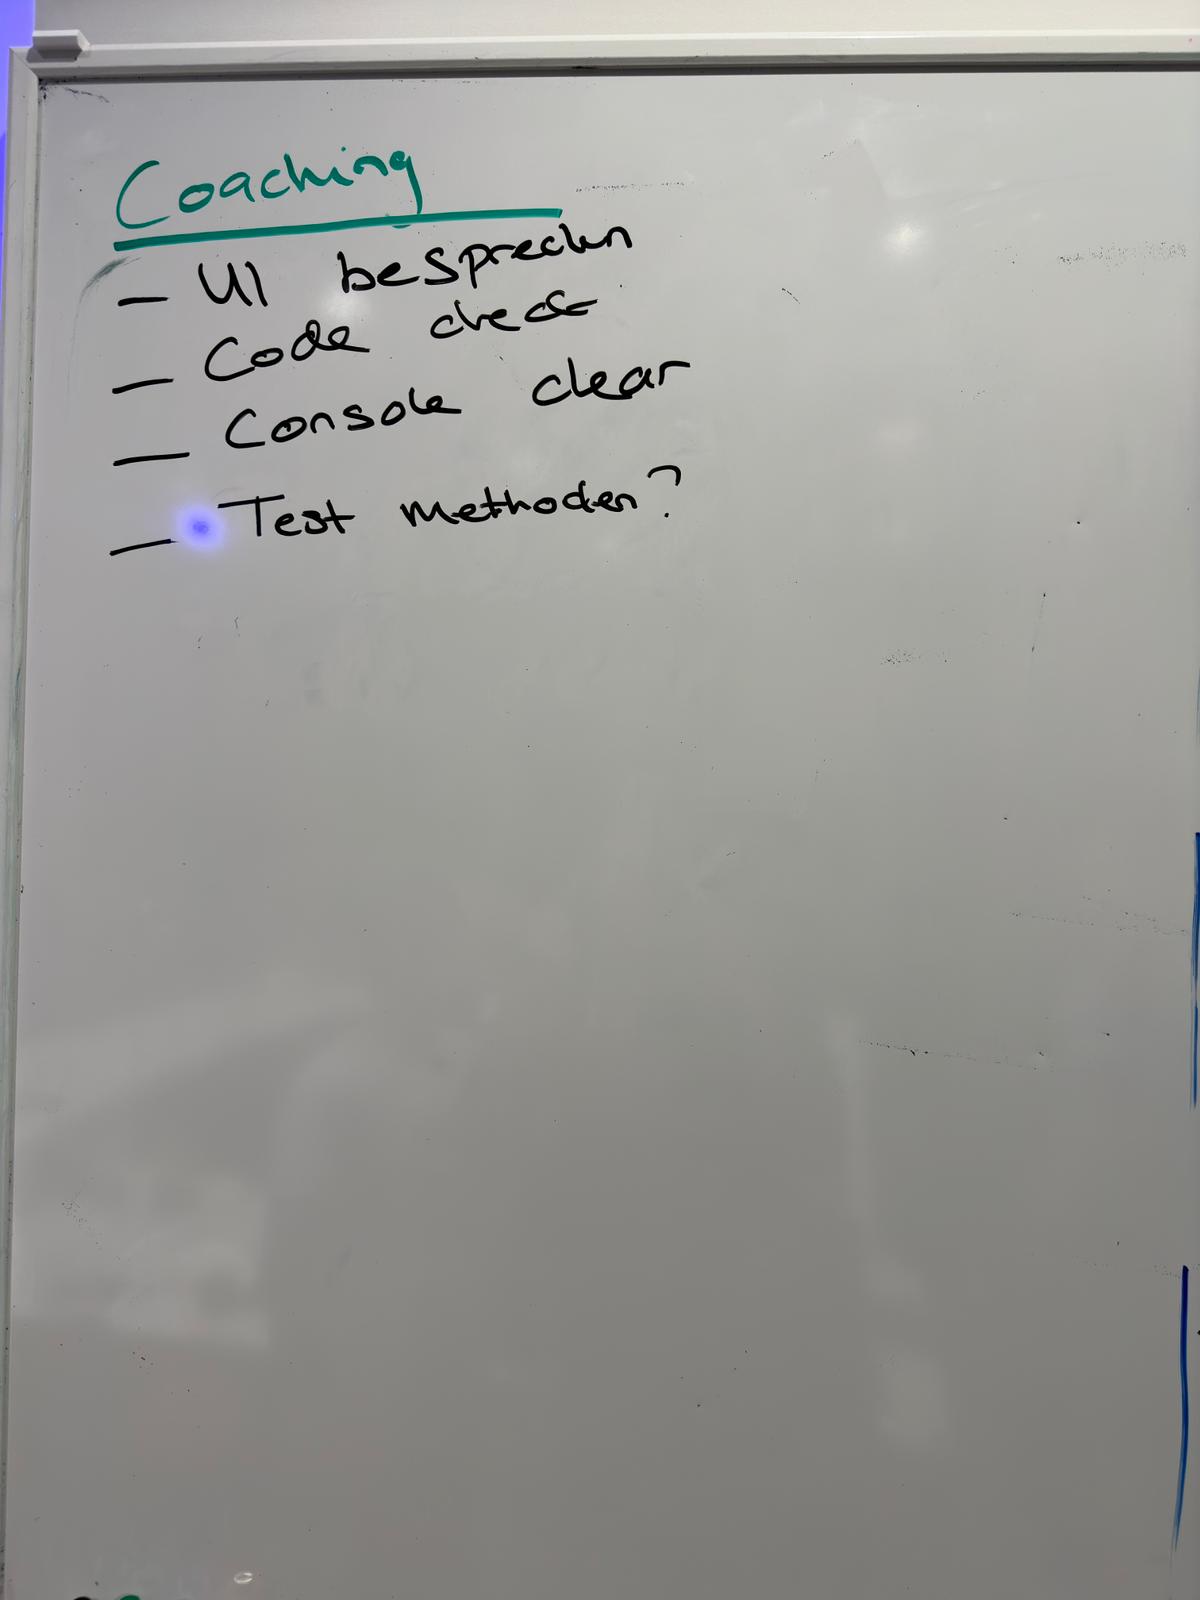 Coaching
- UI besprechen
- Code check
- Console clear
- Test methoden?